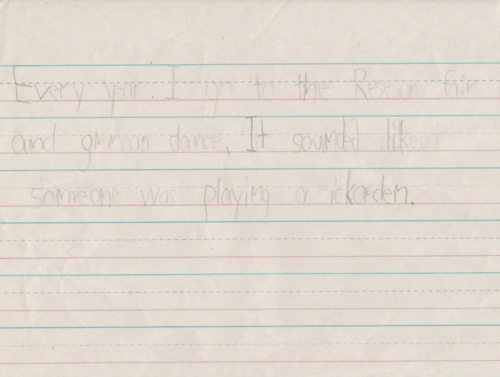 Every year. I go to the Reseson fair
and girman dance. It sounded like
someone was playing a ickorden.